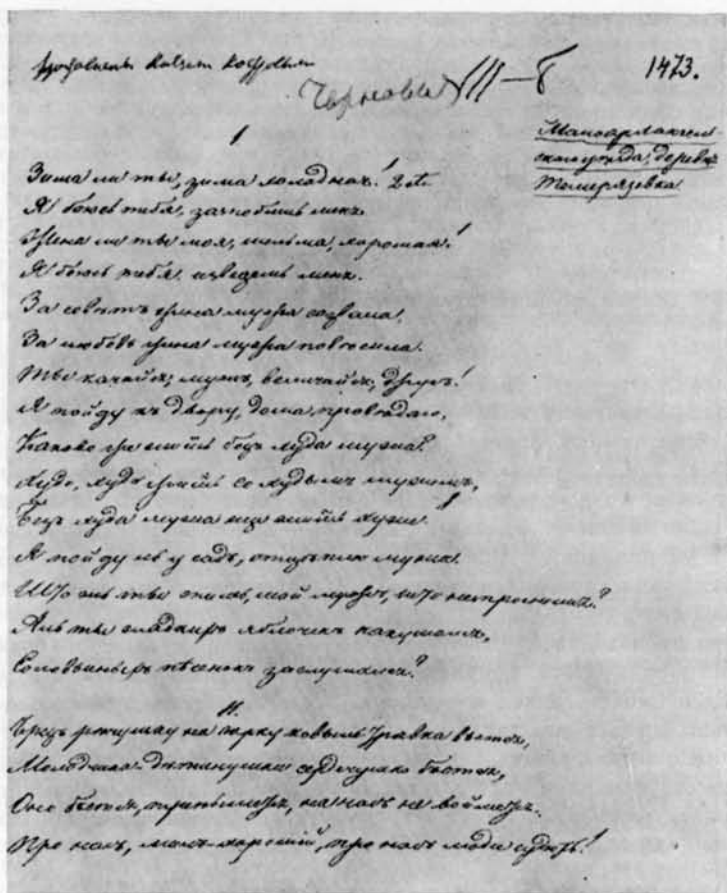 Черновых III—б
1473.
Малоархангель-
скаго уезда, деревня
Темирязевка
I
Зима ли ты, зима холодная! 2 ж.
Я боюсь тибя, зазнобишь меня.
Жина ли ты моя, шельма, хорошая!
Я боюсь тибя, изведешь меня.
За советъ жина мужа
За любовь жина мужа повесила.
Ты качайся, мужъ, величайся, другъ!
Я пойду къ двору, дома проведаю,
Каково жа жить безъ худа мужа?
Худо, худо жить со худымъ мужимъ,
Безъ худа мужа еще жить хужи!
Я пойду жъ у садъ, отцеплю мужа.
Што жъ ты спишь, мой мужъ, што непроснишься?
Аль ты сладкихъ яблочекъ накушался,
Соловьиныхъ песенокъ заслушался?
II.
Чрезъ речушку на горку ковыль травка вьется,
Молодцова детинушки сердечушко бьется,
Оно бьется, на насъ не
Про насъ, хороший, про насъ люди судють!